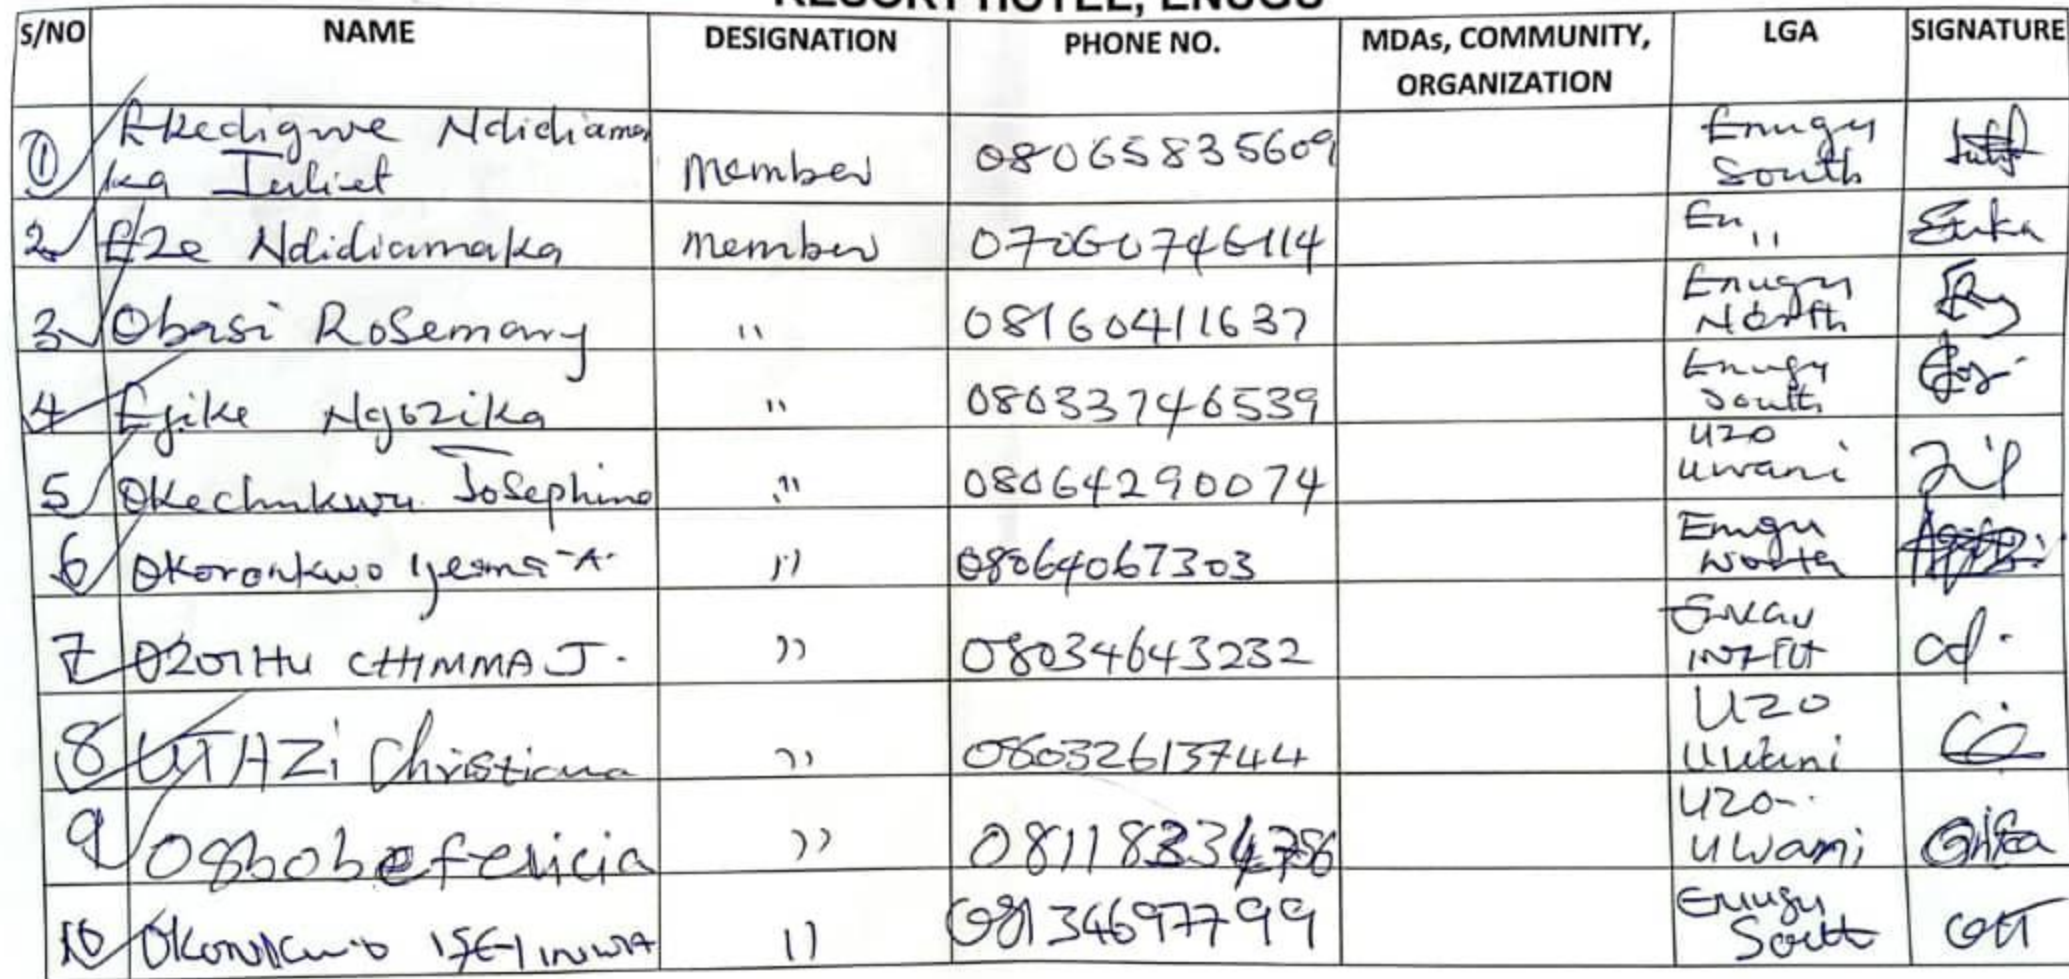 RESORT HOTEL, ENUGU
S/NO NAME DESIGNATION PHONE NO. MDAs, COMMUNITY, ORGANIZATION LGA SIGNATURE
1 Ekedigwe Ndidiama
ka Juliet Member 08065835609 Enugu South
2 Eze Ndidiamaka Member 07060746114 En ,,
3 Obasi Rosemary " 08160411637 Enugu North
4 Ejike Ngozika " 08033746539 Enugu South
5 Okechukwu Josephine " 08064290074 Uzo Uwani
6 Okoronkwo Ijeoma A. " 08064067303 Enugu North
7 OZOIHU CHIMMA J. " 08034643232
8 UTAZi Christiana " 08032613744 Uzo Uwani
9 Ogbobe felicia " Uzo- Uwani
10 Okonkwo " 08134697799 Enugu South